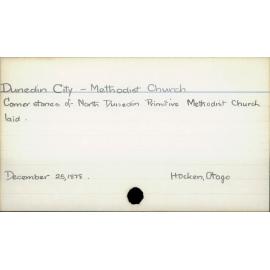 Dunedin City - Methodist Church
Corner stones of North Dunedin Primitive Methodist Church
laid.
December 25, 1878.
Hocken, Otago